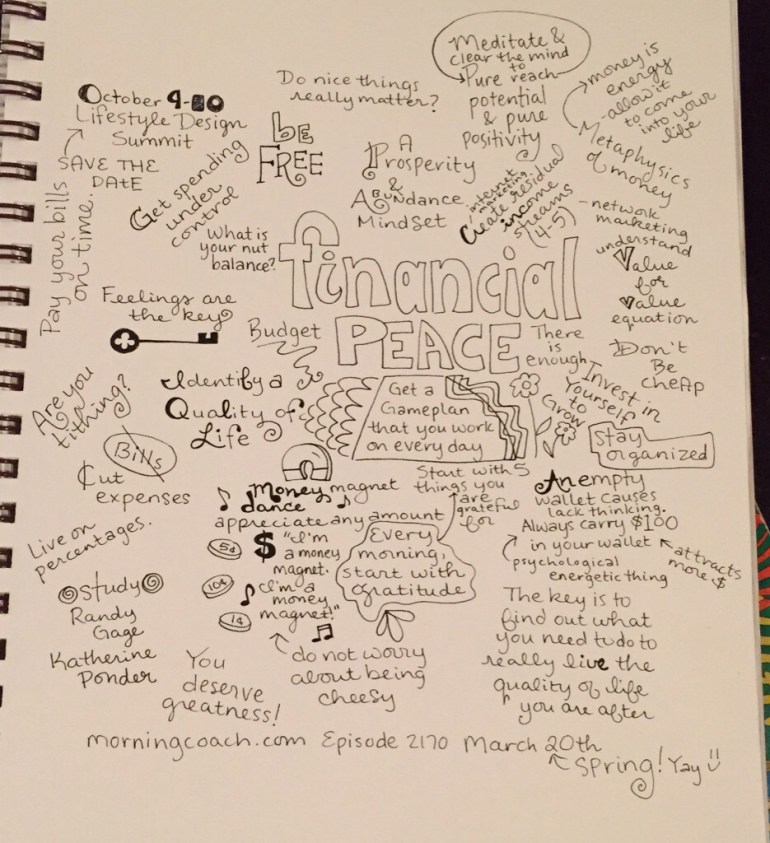 Meditate &
clear the mind
to
Pure reach
potential
& pure
positivity
money is
energy
-allow it
to come
into your
life
Metaphysics
of money
Do nice things
really matter?
October 4-
Lifestyle Design
Summit
SAVE THE
DATE
be
FREE
A
Prosperity
&
Abundance
Mindset
internet
marketing
Create residual
income
streams
(4-5)
-network
marketing
understand
Value
for
value
equation
Get spending
under
control
Pay your bills
on time.
What is
your nut
balance?
financial
PEACE
Feelings are
the key
Budget
There
is
enough
Don't
Be
cheap
Identify a
Quality of
Life
Get a
Gameplan
that you work
on every day
Invest in
Yourself
to
Grow
Stay
organized
Are you
tithing?
Bills
Cut
expenses
Money magnet
dance
appreciate any amount
Start with 5
things you
are
grateful
for
An empty
wallet causes
lack thinking.
Always carry $100
in your wallet
attracts
more $
psychological
energetic thing
Live on
percentages.
5¢
$
"I'm
a money
magnet.
10¢
I'm a
money
magnet!"
1¢
Every
morning,
start with
gratitude
study
Randy
Gage
Katherine
Ponder
You
deserve
greatness!
do not worry
about being
cheesy
The key is to
find out what
you need to do to
really live the
quality of life
you are after
morningcoach.com Episode 2170 March 20th
Spring! Yay